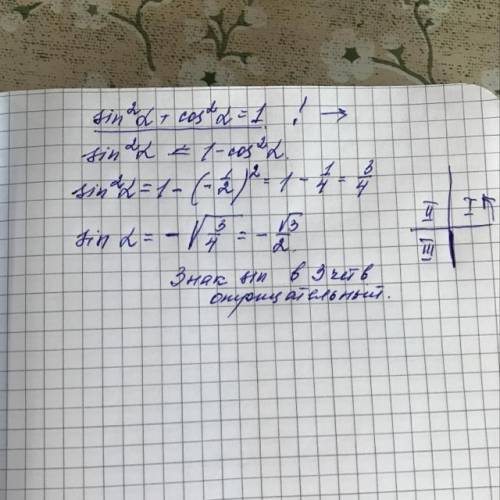 sin²α + cos²α = 1 ! →
sin²α = 1 - cos²α.
sin²α = 1 - (-1/2)² = 1 - 1/4 = 3/4
sin α = -√(3/4) = -√3/2.
II I
III
Знак sin в 3 четв
отрицательный.